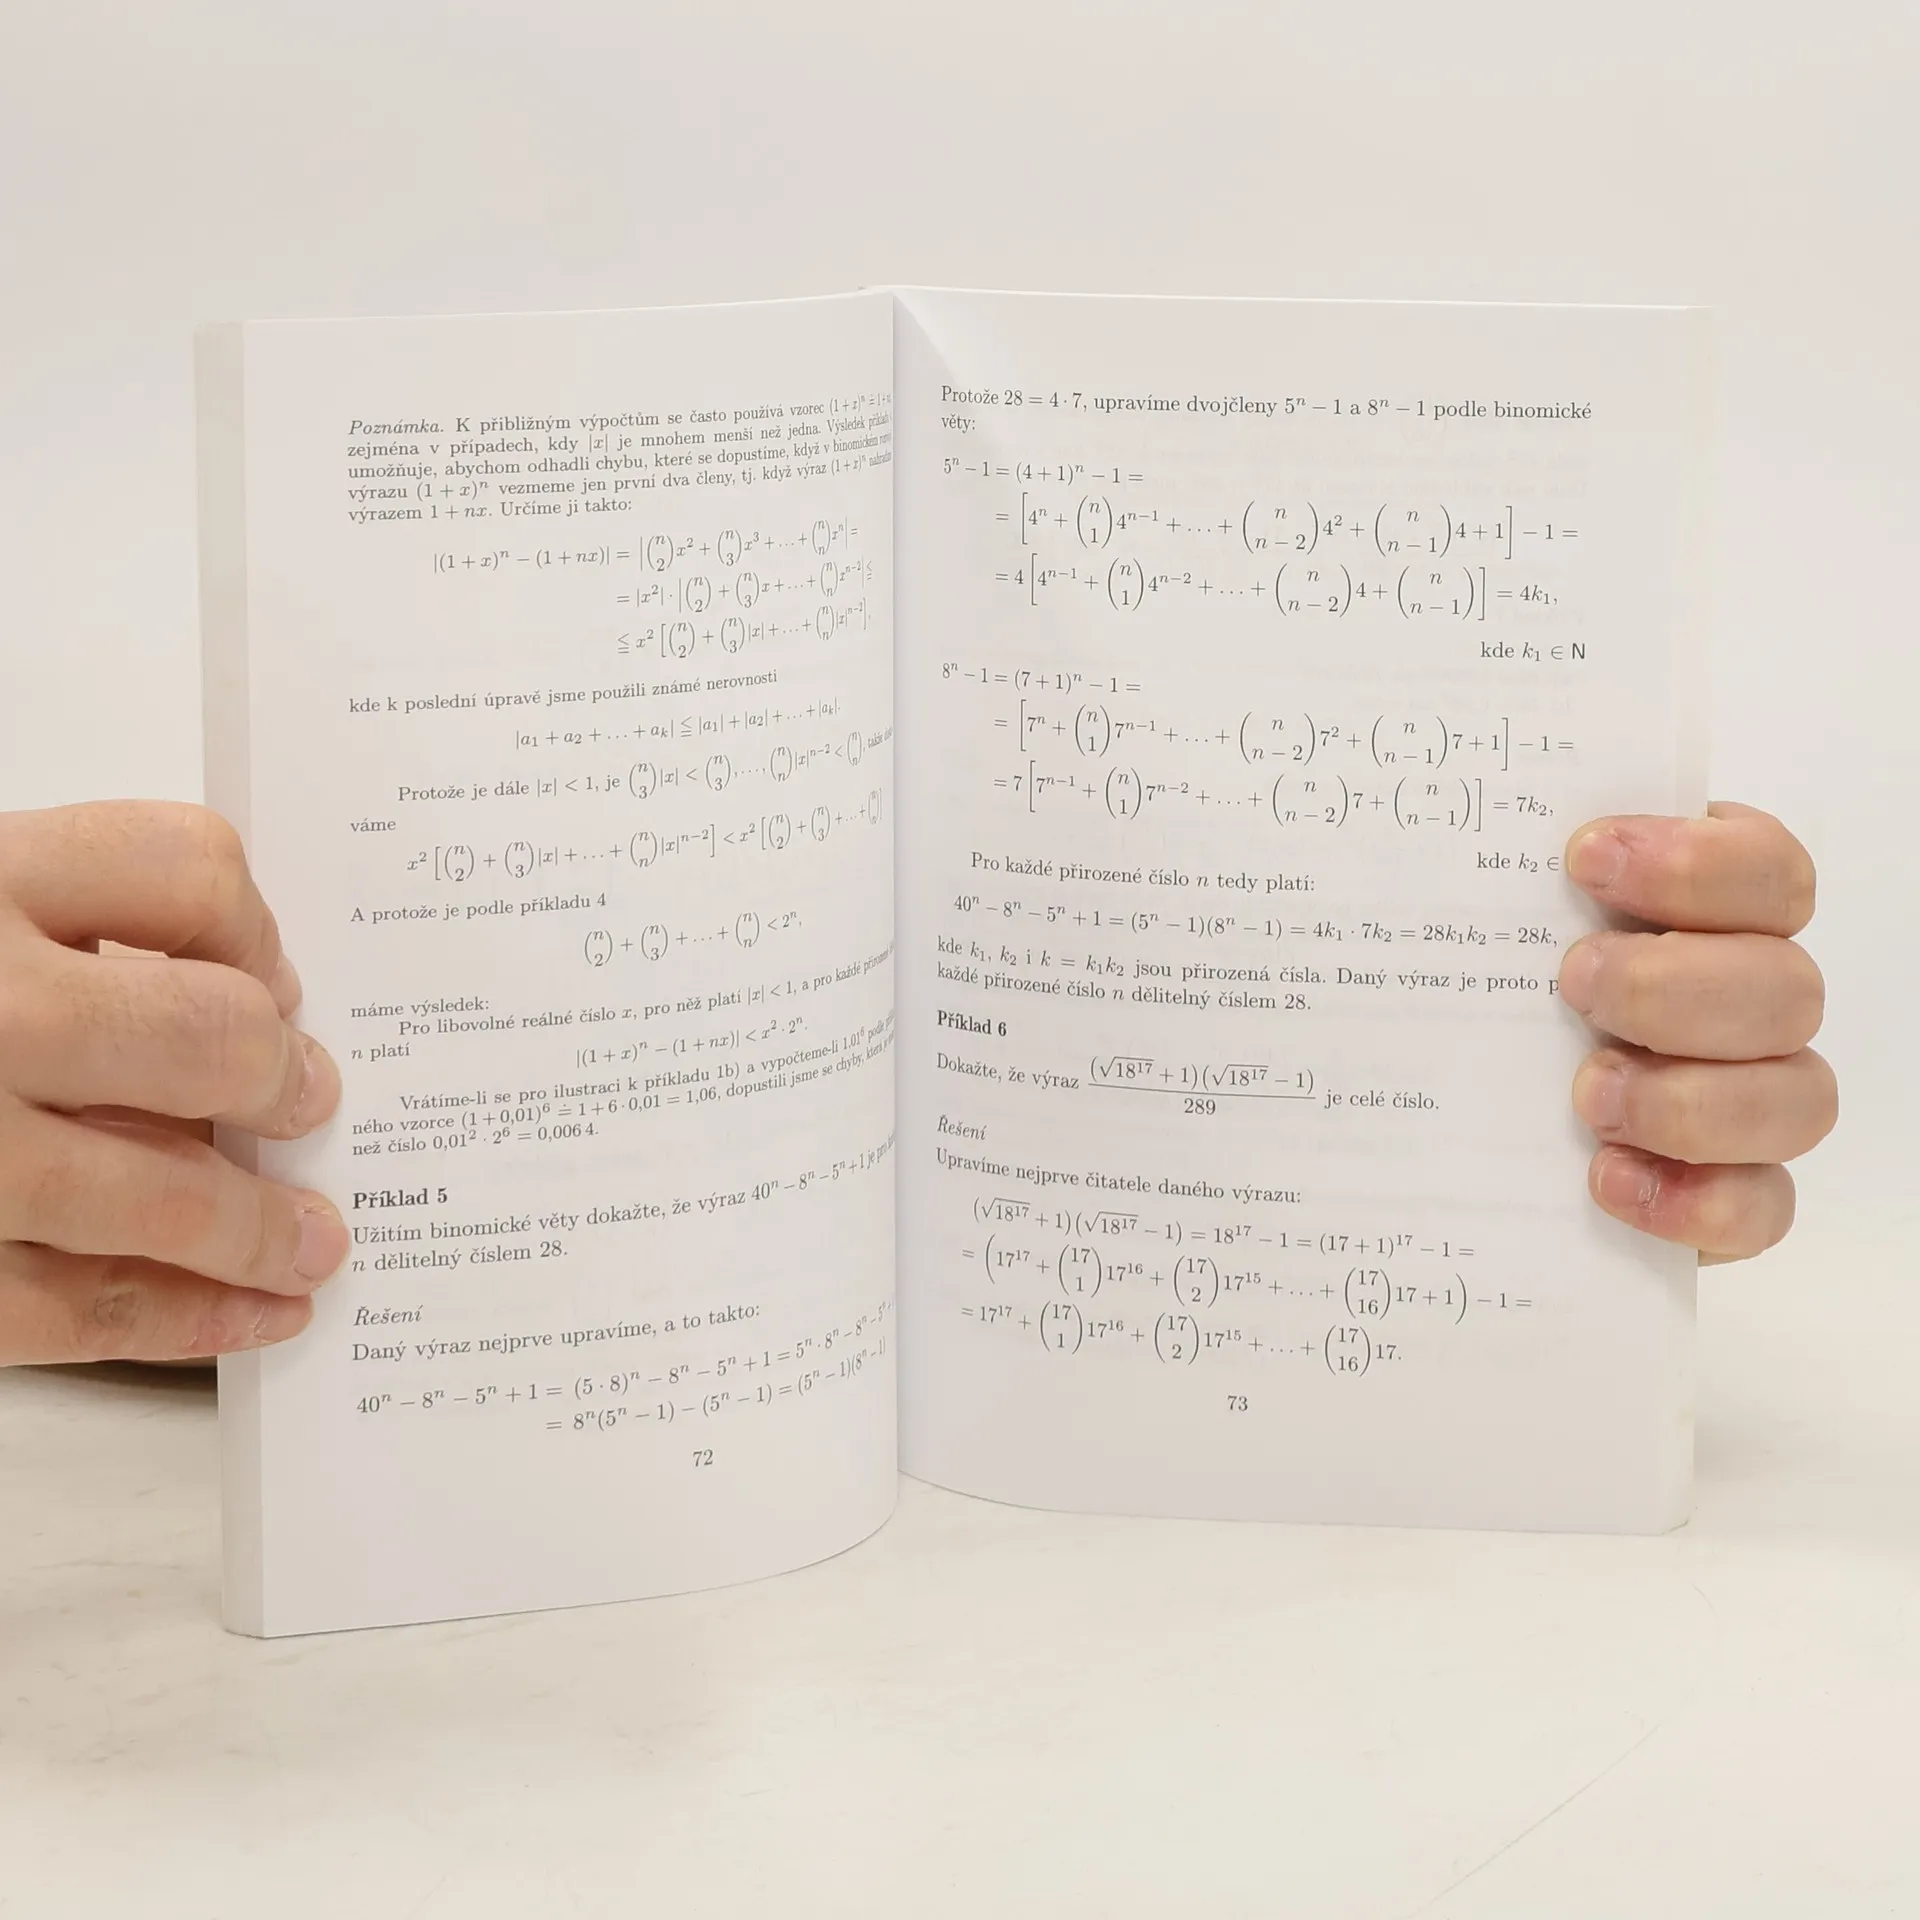 Poznámka. K přibližným výpočtům se často používá vzorec (1 + x)ⁿ ≐ 1 +
zejména v případech, kdy |x| je mnohem menší než jedna. Výsledek příkladu
umožňuje, abychom odhadli chybu, které se dopustíme, když v binomickém
výrazu (1 + x)ⁿ vezmeme jen první dva členy, tj. když výraz (1 + x)ⁿ
výrazem 1 + nx. Určíme ji takto:
|(1 + x)ⁿ − (1 + nx)| = |(n 2)x² + (n 3)x³ + … + (n n)xⁿ| =
= |x²| · |(n 2) + (n 3)x + … + (n n)xⁿ⁻²| ≦
≦ x² [(n 2) + (n 3)|x| + … + (n n)|x|ⁿ⁻²],
kde k poslední úpravě jsme použili známé nerovnosti
|a₁ + a₂ + … + aₖ| ≦ |a₁| + |a₂| + … + |aₖ|.
Protože je dále |x| < 1, je (n 3)|x| < (n 3), …, (n n)|x|ⁿ⁻² < (n n), takže
váme
x² [(n 2) + (n 3)|x| + … + (n n)|x|ⁿ⁻²] < x² [(n 2) + (n 3) + … + (n n)]
A protože je podle příkladu 4
(n 2) + (n 3) + … + (n n) < 2ⁿ,
máme výsledek:
Pro libovolné reálné číslo x, pro něž platí |x| < 1, a pro každé
n platí
|(1 + x)ⁿ − (1 + nx)| < x² · 2ⁿ.
Vrátíme-li se pro ilustraci k příkladu 1b) a vypočteme-li 1,01⁶ podle
ného vzorce (1 + 0,01)⁶ ≐ 1 + 6 · 0,01 = 1,06, dopustili jsme se chyby, která je
než číslo 0,01² · 2⁶ = 0,006 4.
Příklad 5
Užitím binomické věty dokažte, že výraz 40ⁿ − 8ⁿ − 5ⁿ + 1 je pro
n dělitelný číslem 28.
Řešení
Daný výraz nejprve upravíme, a to takto:
40ⁿ − 8ⁿ − 5ⁿ + 1 = (5 · 8)ⁿ − 8ⁿ − 5ⁿ + 1 = 5ⁿ · 8ⁿ − 8ⁿ − 5ⁿ +
= 8ⁿ(5ⁿ − 1) − (5ⁿ − 1) = (5ⁿ − 1)(8ⁿ − 1)
72
Protože 28 = 4 · 7, upravíme dvojčleny 5ⁿ − 1 a 8ⁿ − 1 podle binomické
věty:
5ⁿ − 1 = (4 + 1)ⁿ − 1 =
= [4ⁿ + (n 1)4ⁿ⁻¹ + … + (n n − 2)4² + (n n − 1)4 + 1] − 1 =
= 4 [4ⁿ⁻¹ + (n 1)4ⁿ⁻² + … + (n n − 2)4 + (n n − 1)] = 4k₁,
kde k₁ ∈ N
8ⁿ − 1 = (7 + 1)ⁿ − 1 =
= [7ⁿ + (n 1)7ⁿ⁻¹ + … + (n n − 2)7² + (n n − 1)7 + 1] − 1 =
= 7 [7ⁿ⁻¹ + (n 1)7ⁿ⁻² + … + (n n − 2)7 + (n n − 1)] = 7k₂,
kde k₂ ∈
Pro každé přirozené číslo n tedy platí:
40ⁿ − 8ⁿ − 5ⁿ + 1 = (5ⁿ − 1)(8ⁿ − 1) = 4k₁ · 7k₂ = 28k₁k₂ = 28k,
kde k₁, k₂ i k = k₁k₂ jsou přirozená čísla. Daný výraz je proto p
každé přirozené číslo n dělitelný číslem 28.
Příklad 6
Dokažte, že výraz (√18¹⁷ + 1)(√18¹⁷ − 1) / 289 je celé číslo.
Řešení
Upravíme nejprve čitatele daného výrazu:
(√18¹⁷ + 1)(√18¹⁷ − 1) = 18¹⁷ − 1 = (17 + 1)¹⁷ − 1 =
= (17¹⁷ + (17 1)17¹⁶ + (17 2)17¹⁵ + … + (17 16)17 + 1) − 1 =
= 17¹⁷ + (17 1)17¹⁶ + (17 2)17¹⁵ + … + (17 16)17.
73